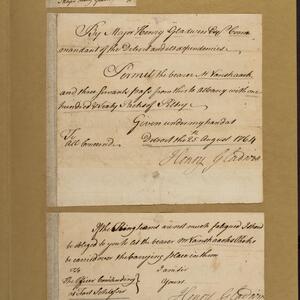 By Major Henry Gladwin Esqr Com
mandant of the Detroit and its dependencies.
Permit the bearer Mr Vanshaack
and three Servants pass from this to Albany with one
hundred & Ninty Packs of Peltry
Given under my hand at
Detroit the 25th August 1764
To
All Concerned
Henry Gladwin
If the Kings are not much fatigued I should
be obliged to you to let the bearer Mr Vanshaacks Packs
be carried over the carrying place in them
I am Sir
Yours
Henry Gladwin
The Officer Commanding
at Fort Schlosser